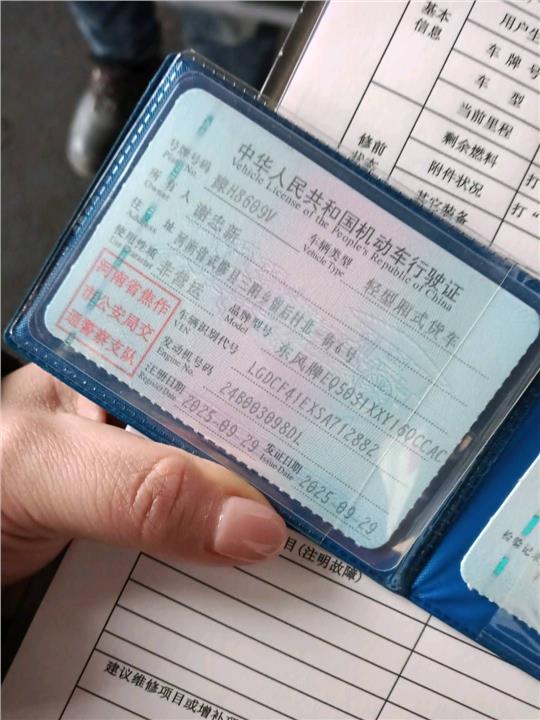 基本
信息
用户生
车牌号
车 型
修前
状态
当前里程
剩余燃料
附件状况
打
其它装备
打"
中华人民共和国机动车行驶证
Vehicle License of the People's Republic of China
号牌号码
Plate No.
豫H8609V
车辆类型
Vehicle Type
轻型厢式货车
所有人
Owner
谢忠新
住 址
Address
河南省武陟县三阳乡留石村北一街6号
使用性质
Use Character
非营运
品牌型号
Model
东风牌EQ5031XXY16QCCAC
河南省焦作
市公安局交
通警察支队
车辆识别代号
VIN
LGDCF41EXSA712882
发动机号码
Engine No.
24B003098DL
注册日期
Register Date
2025-09-29
发证日期
Issue Date
2025-09-29
检验记
目(注明故障)
建议维修项目或增补项